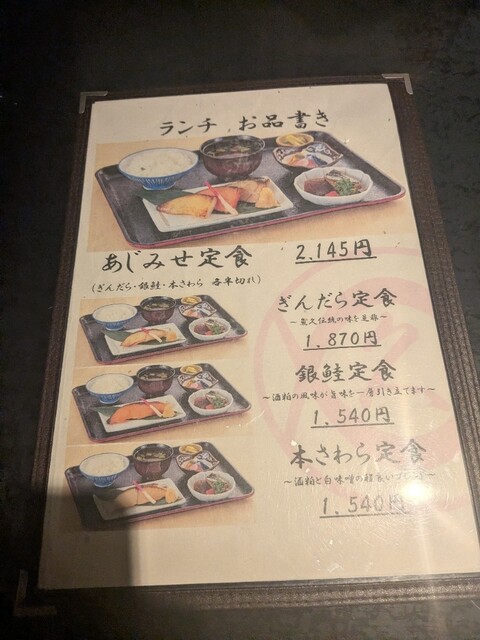 ランチ お品書き
あじみせ定食 2,145円
(ぎんだら・銀鮭・本さわら 各半切れ)
ぎんだら定食
1,870円
銀鮭定食
～酒粕の風味が旨味を一層引き立てます～
1,540円
本さわら定食
～酒粕と白味噌の
1,540円